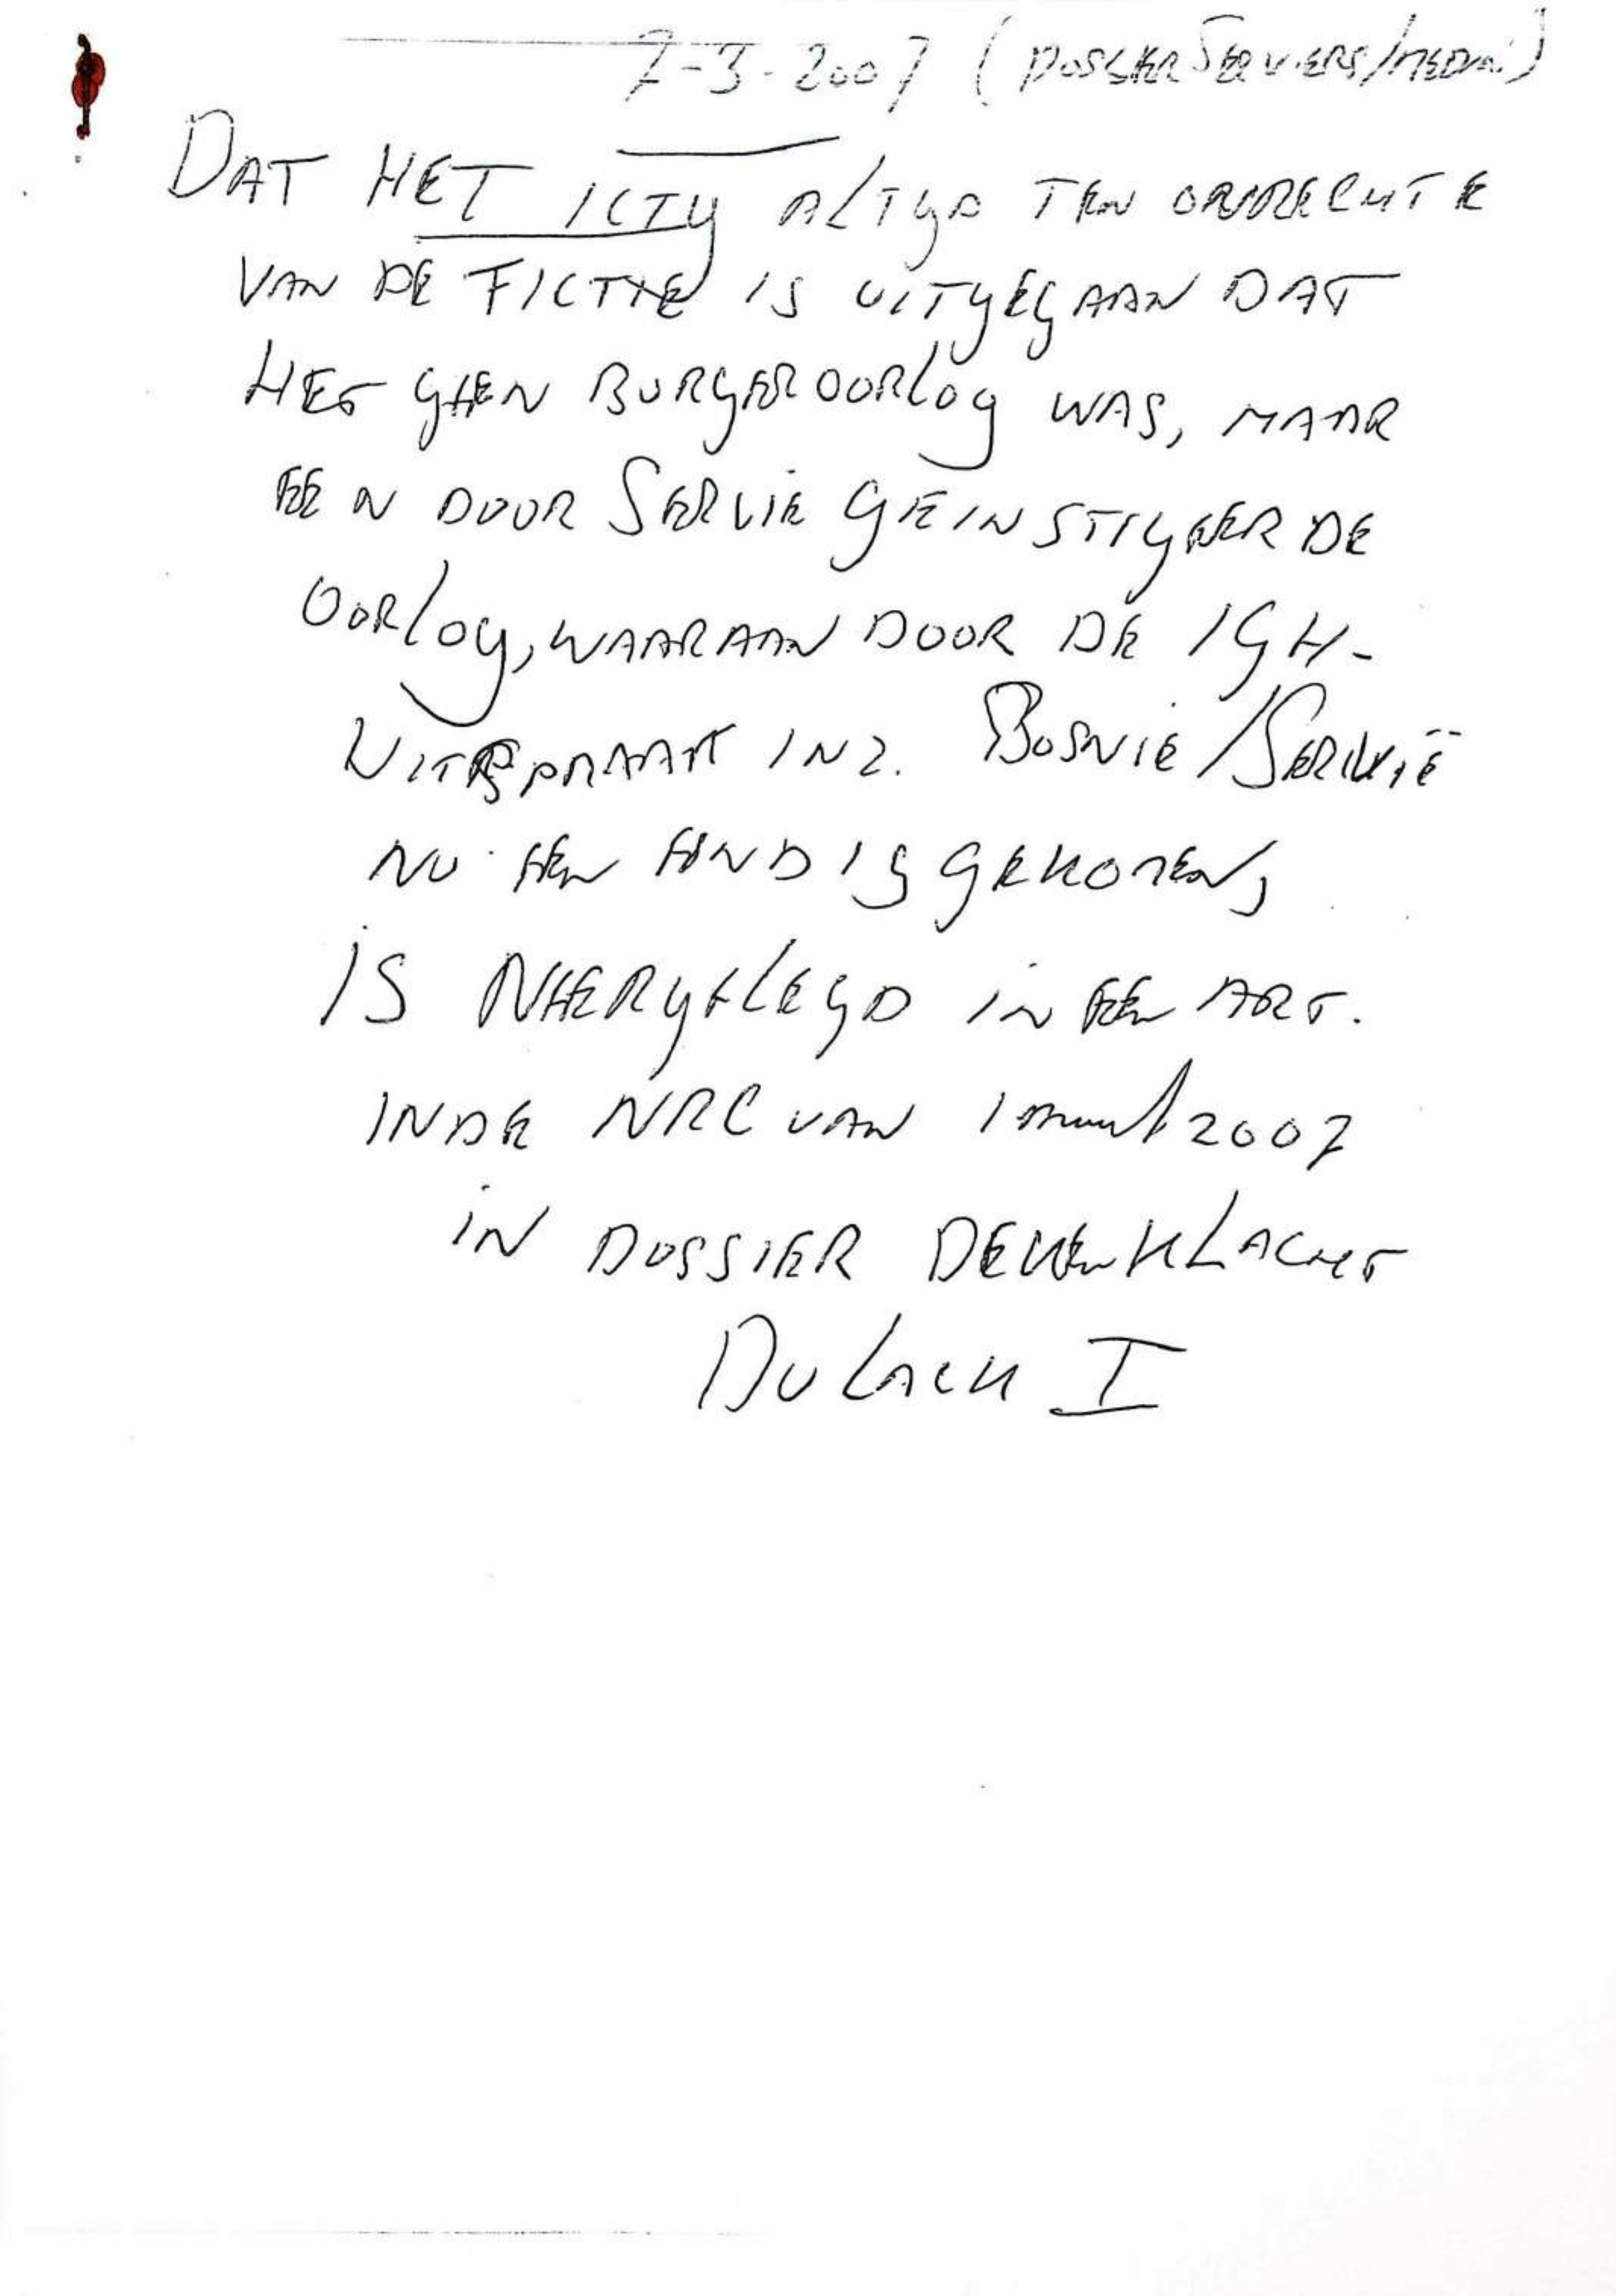 7-3-2007 (DOSSIER SERVIERS/MEDIA)
DAT HET ICTY ALTYD TEN ONRECHTE
VAN DE FICTIE IS UITGEGAAN DAT
HET GEEN BURGEROORLOG WAS, MAAR
EEN DOOR SERVIE GEINSTIGEERDE
OORLOG, WAARAAN DOOR DE IGH-
UITSPRAAK INZ. BOSNIE/SERVIË
NU EEN EIND IS GEKOMEN,
IS NEERGELEGD IN EEN ART.
IN DE NRC VAN 1 maart 2007
IN DOSSIER DEKENKLACHT
DULACK I